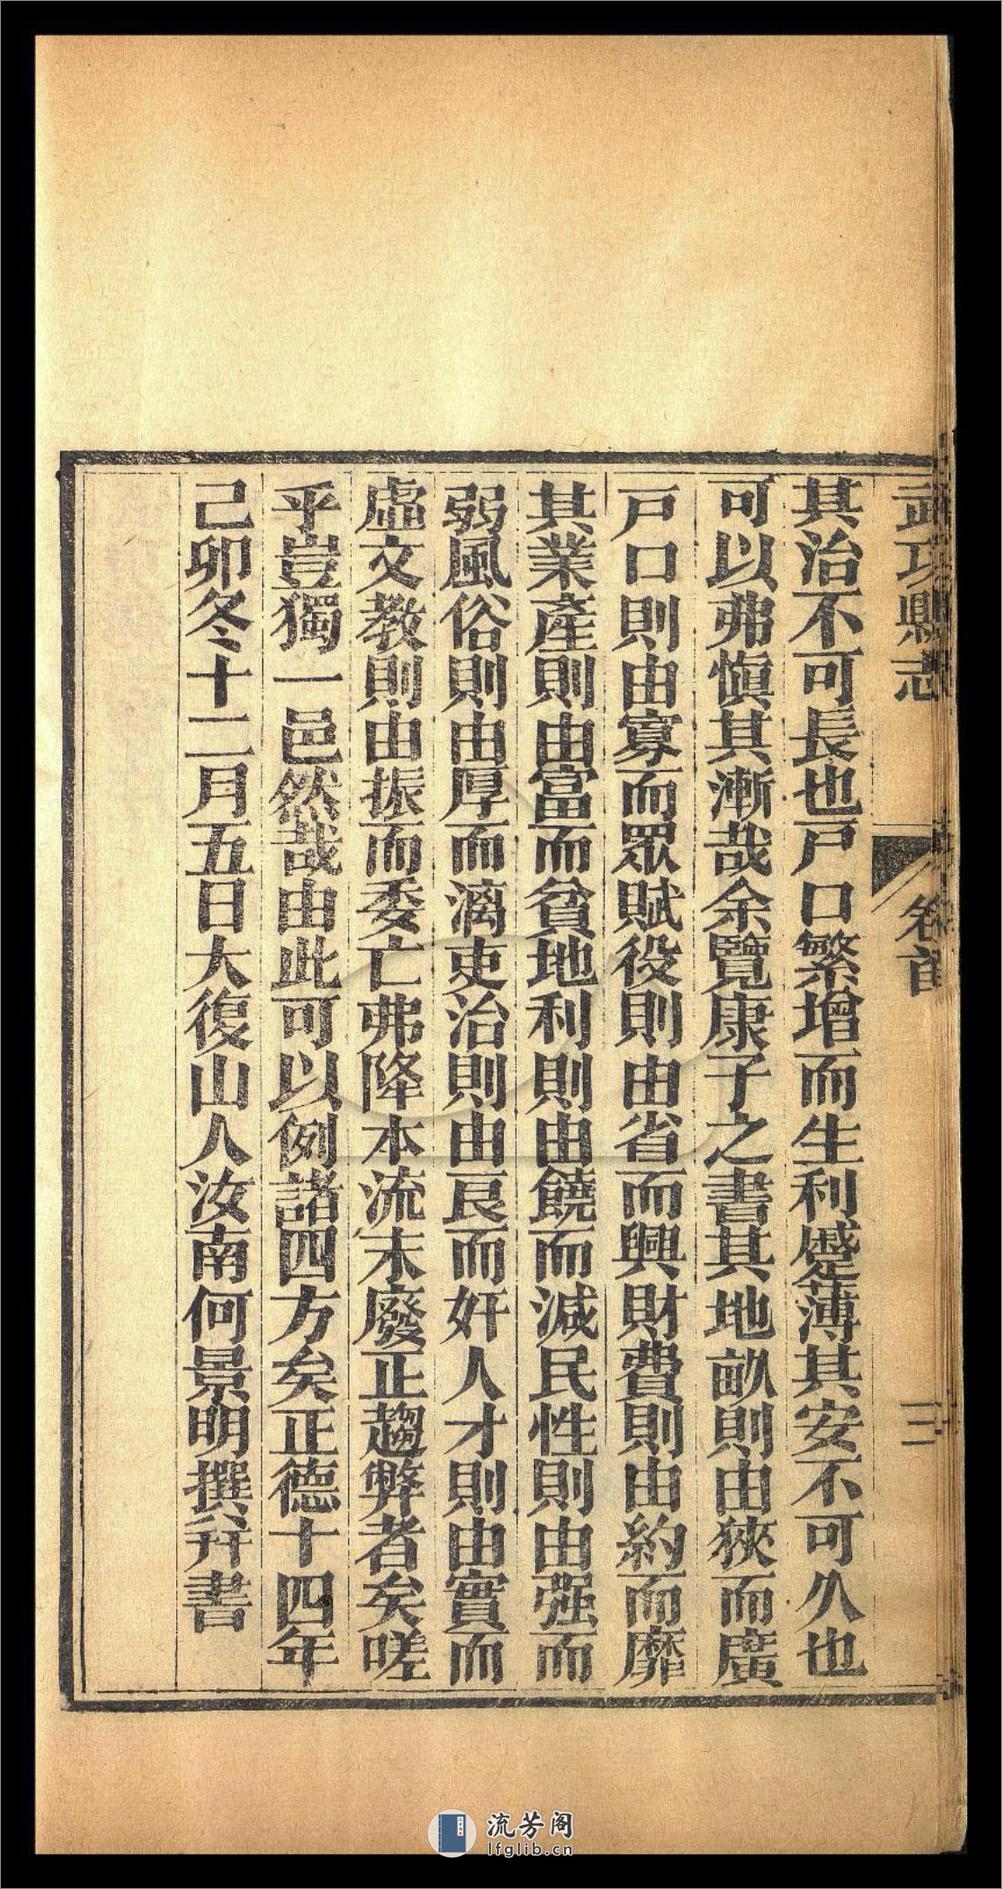 武功縣志
卷首
三
其治不可長也戸口繁增而生利蹙薄其安不可久也
可以弗慎其漸哉余覽康子之書其地畝則由狹而廣
戸口則由寡而眾賦役則由省而興財費則由約而靡
其業產則由富而貧地利則由饒而減民性則由强而
弱風俗則由厚而漓吏治則由良而奸人才則由實而
虛文教則由振而委亡弗降本流末廢正趨弊者矣嗟
乎豈獨一邑然哉由此可以例諸四方矣正德十四年
己卯冬十二月五日大復山人汝南何景明撰并書
流芳阁
lfglib.cn